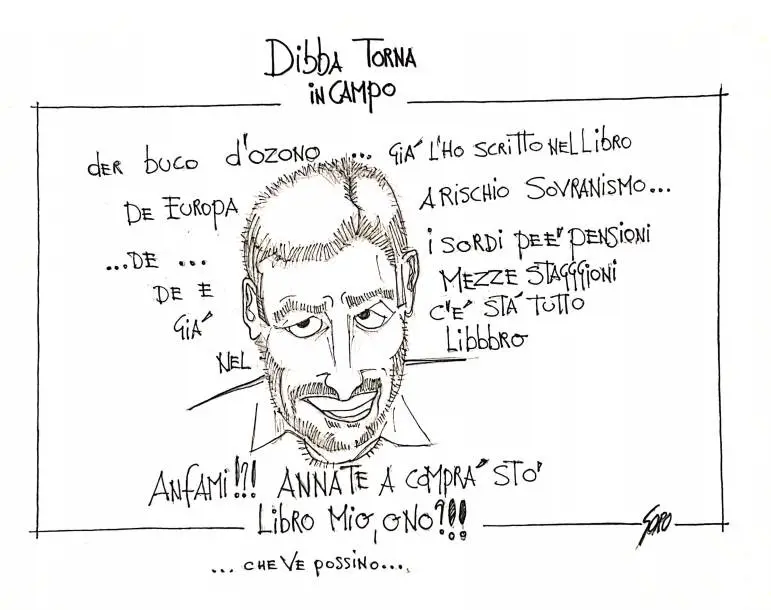 DIBBA TORNA
IN CAMPO
DER BUCO D'OZONO ... GIÁ L'HO SCRITTO NEL LIBRO
DE EUROPA A RISCHIO SOVRANISMO...
...DE ... I SORDI PEE' PENSIONI
DE E MEZZE STAGGGIONI
GIÁ C'E' STÁ TUTTO
NEL LIBBBRO
ANFAMI!?! ANNATE A COMPRÁ STO'
LIBRO MIO, O NO?!!!
SORO
... CHE VE POSSINO....